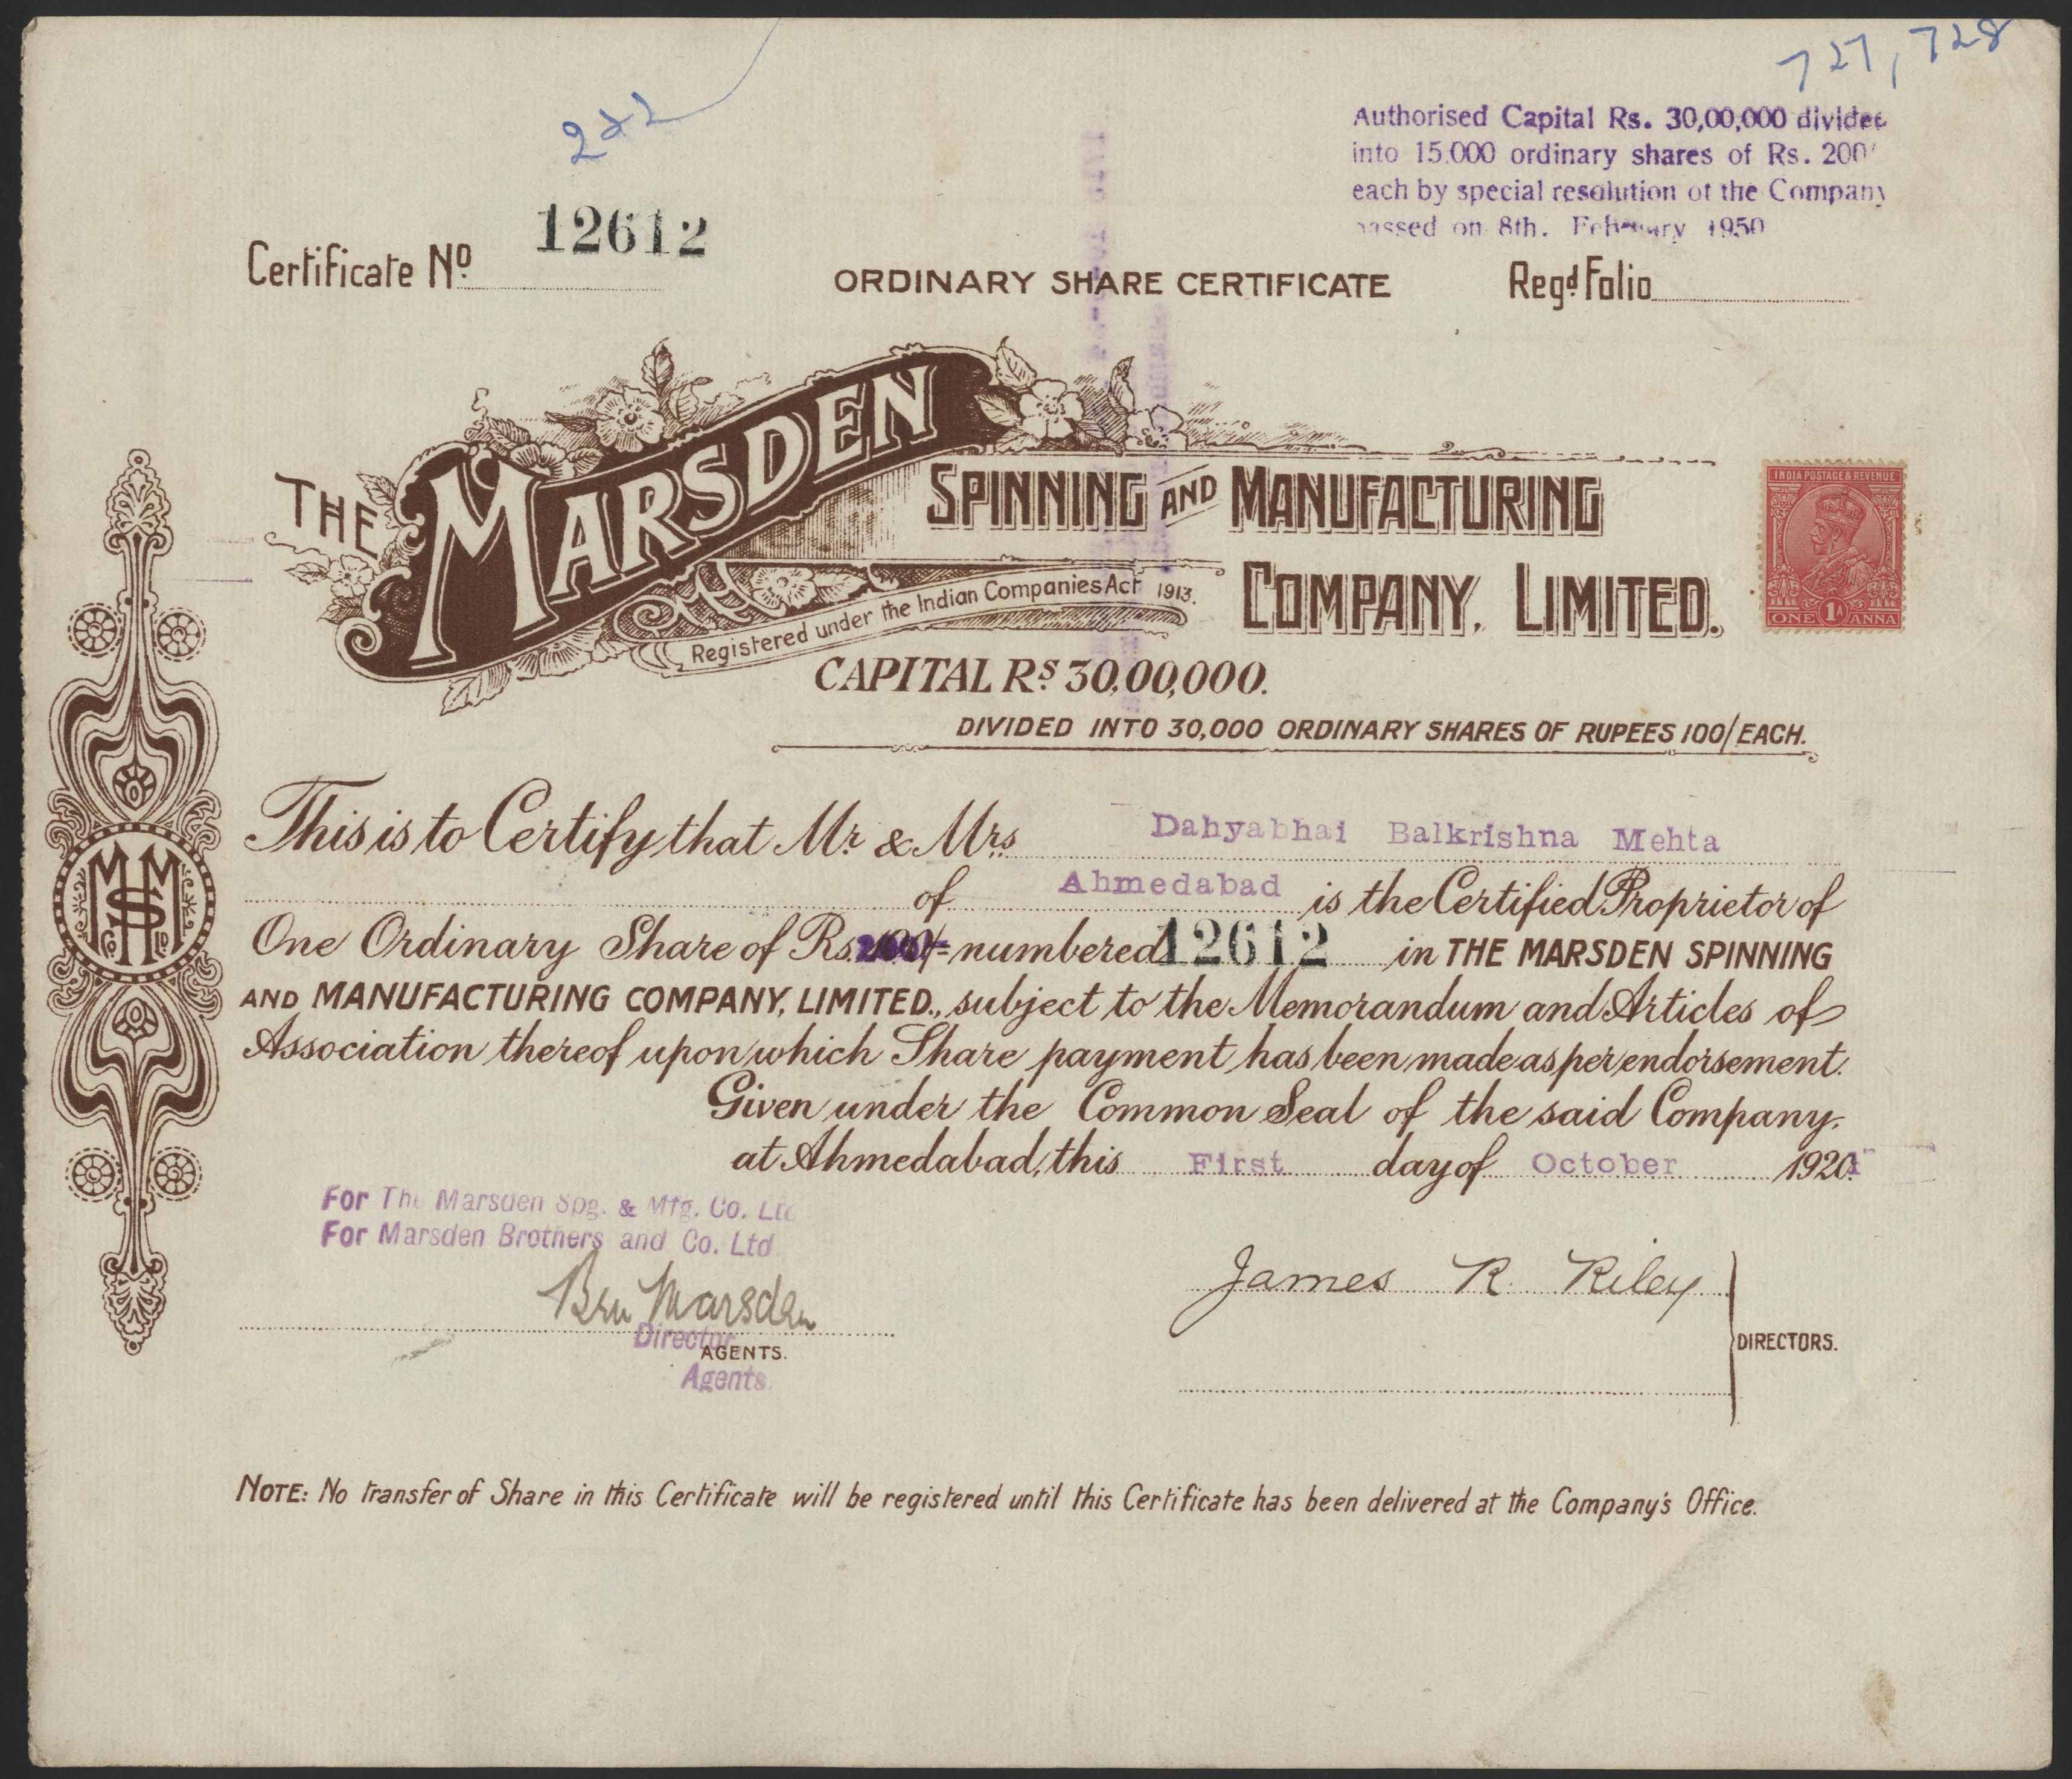 727, 728
222
Authorised Capital Rs. 30,00,000 divided
into 15,000 ordinary shares of Rs. 200/
each by special resolution of the Company
passed on 8th. February 1950
12612
Certificate No.
ORDINARY SHARE CERTIFICATE
Regd. Folio
THE MARSDEN
SPINNING AND MANUFACTURING
COMPANY, LIMITED.
Registered under the Indian Companies Act 1913.
INDIA POSTAGE & REVENUE
1A
ONE ANNA
CAPITAL RS. 30,00,000.
DIVIDED INTO 30,000 ORDINARY SHARES OF RUPEES 100/EACH.
This is to Certify that Mr. & Mrs. Dahyabhai Balkrishna Mehta
of Ahmedabad is the Certified Proprietor of
One Ordinary Share of Rs. 200/- numbered 12612 in THE MARSDEN SPINNING
AND MANUFACTURING COMPANY, LIMITED., subject to the Memorandum and Articles of
Association thereof upon which Share payment has been made as per endorsement.
Given under the Common Seal of the said Company,
at Ahmedabad, this First day of October 1921
For The Marsden Spg. & Mfg. Co. Ltd
For Marsden Brothers and Co. Ltd
Ben Marsden
Director
AGENTS.
Agents.
James R. Riley
DIRECTORS.
NOTE: No transfer of Share in this Certificate will be registered until this Certificate has been delivered at the Company's Office.